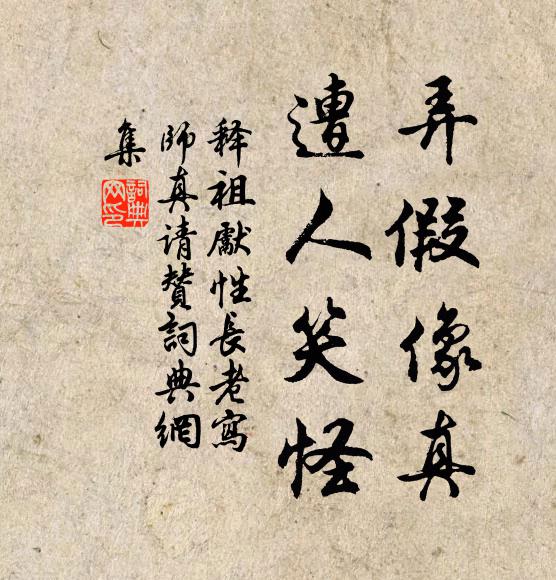 弄假像真
遭人笑怪
释祖獻性長老寫
師真请贊詞典網
集
詞典
网印